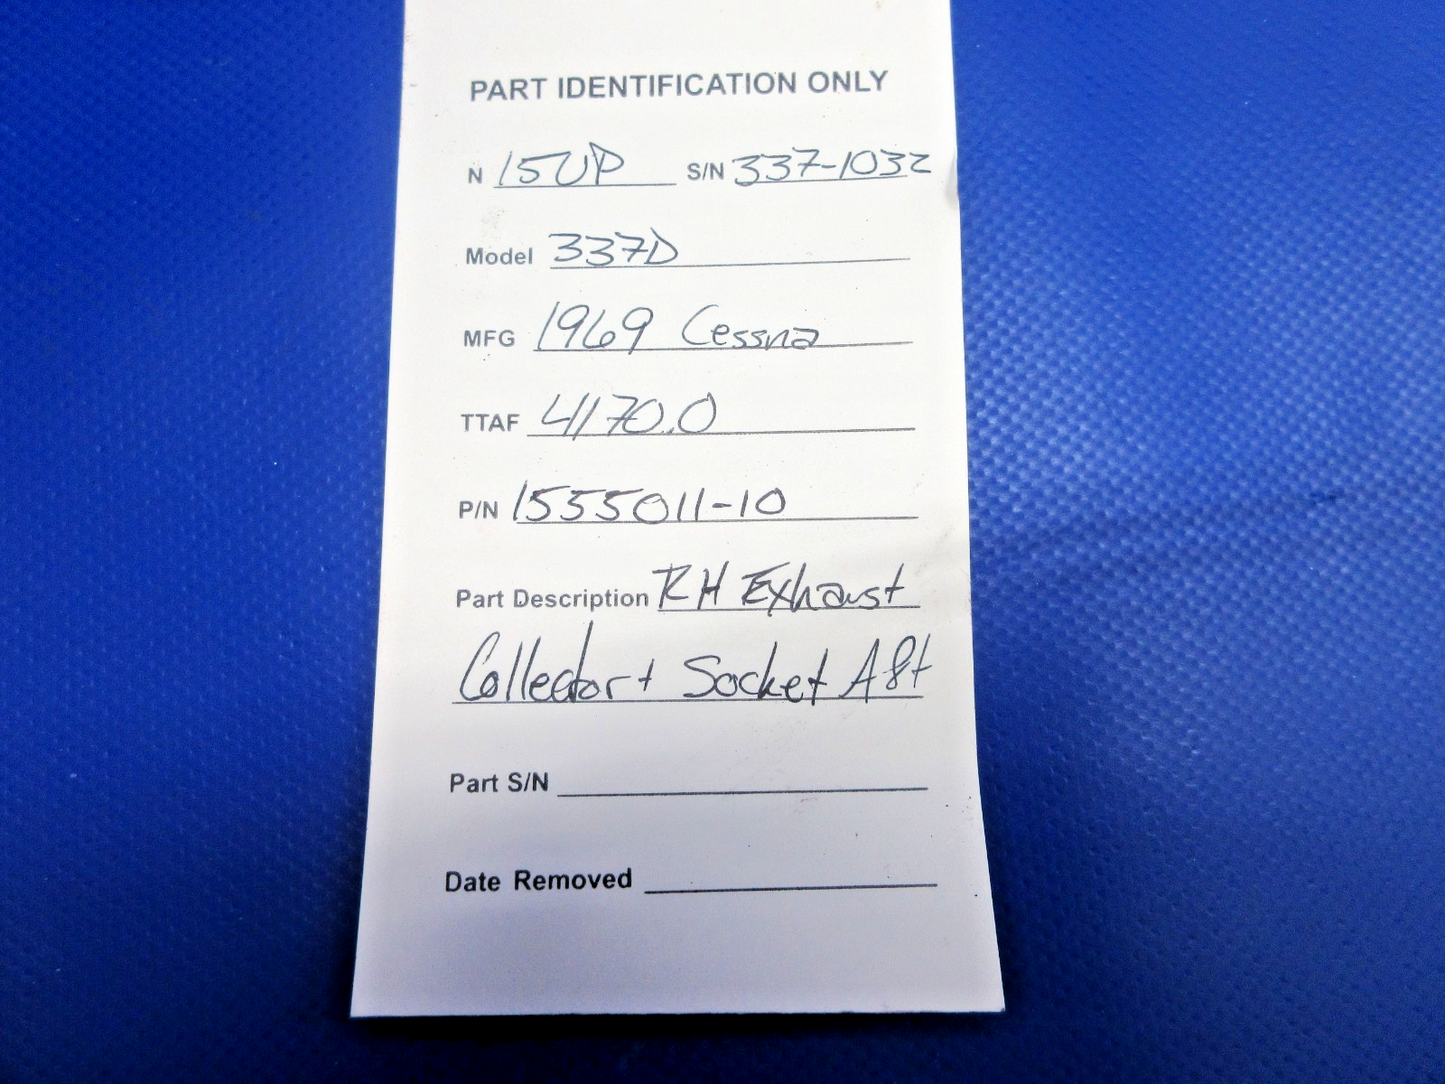 PART IDENTIFICATION ONLY
N 15UP S/N 337-1032
Model 337D
MFG 1969 Cessna
TTAF 4170.0
P/N 1555011-10
Part Description RH Exhaust
Collector + Socket Aft
Part S/N
Date Removed